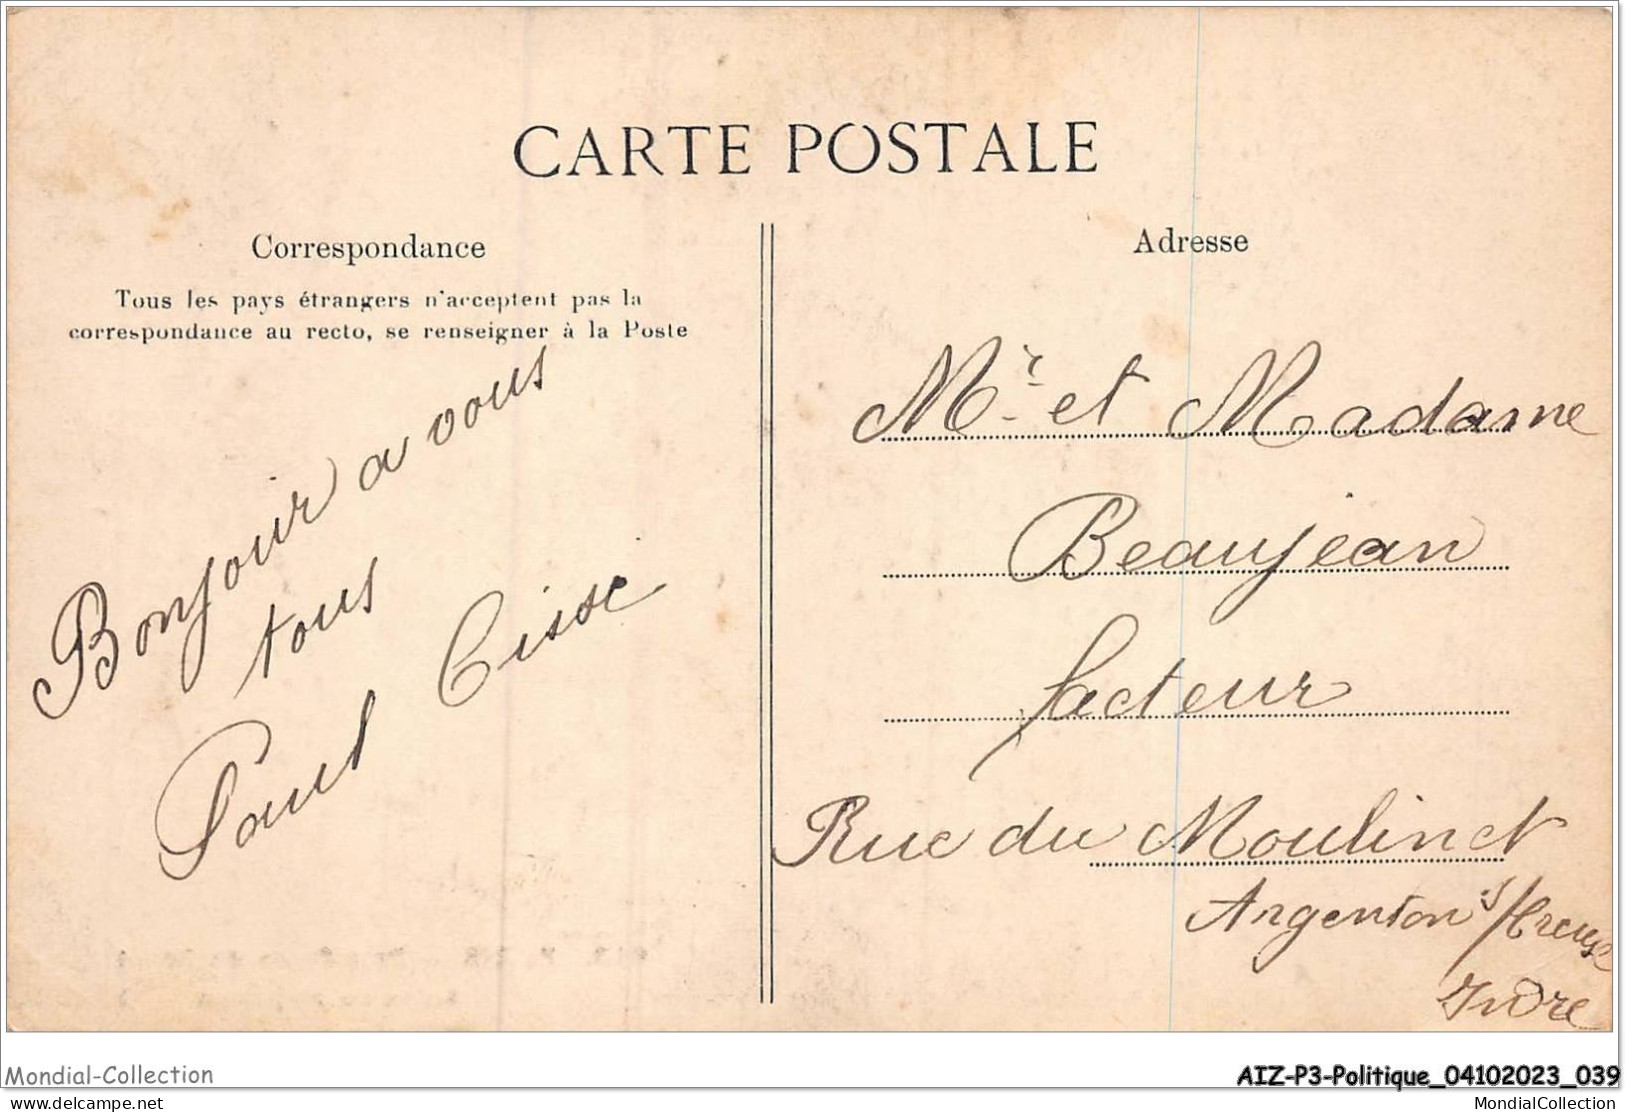 CARTE POSTALE
Correspondance
Tous les pays étrangers n'acceptent pas la
correspondance au recto, se renseigner à la Poste
Bonjour a vous
tous
Paul Cisse
Adresse
Mr et Madame
Beaujean
facteur
Rue du Moulinet
Argenton s/Creuse
Indre
Mondial-Collection
AIZ-P3-Politique_04102023_039
www.delcampe.net
MondialCollection